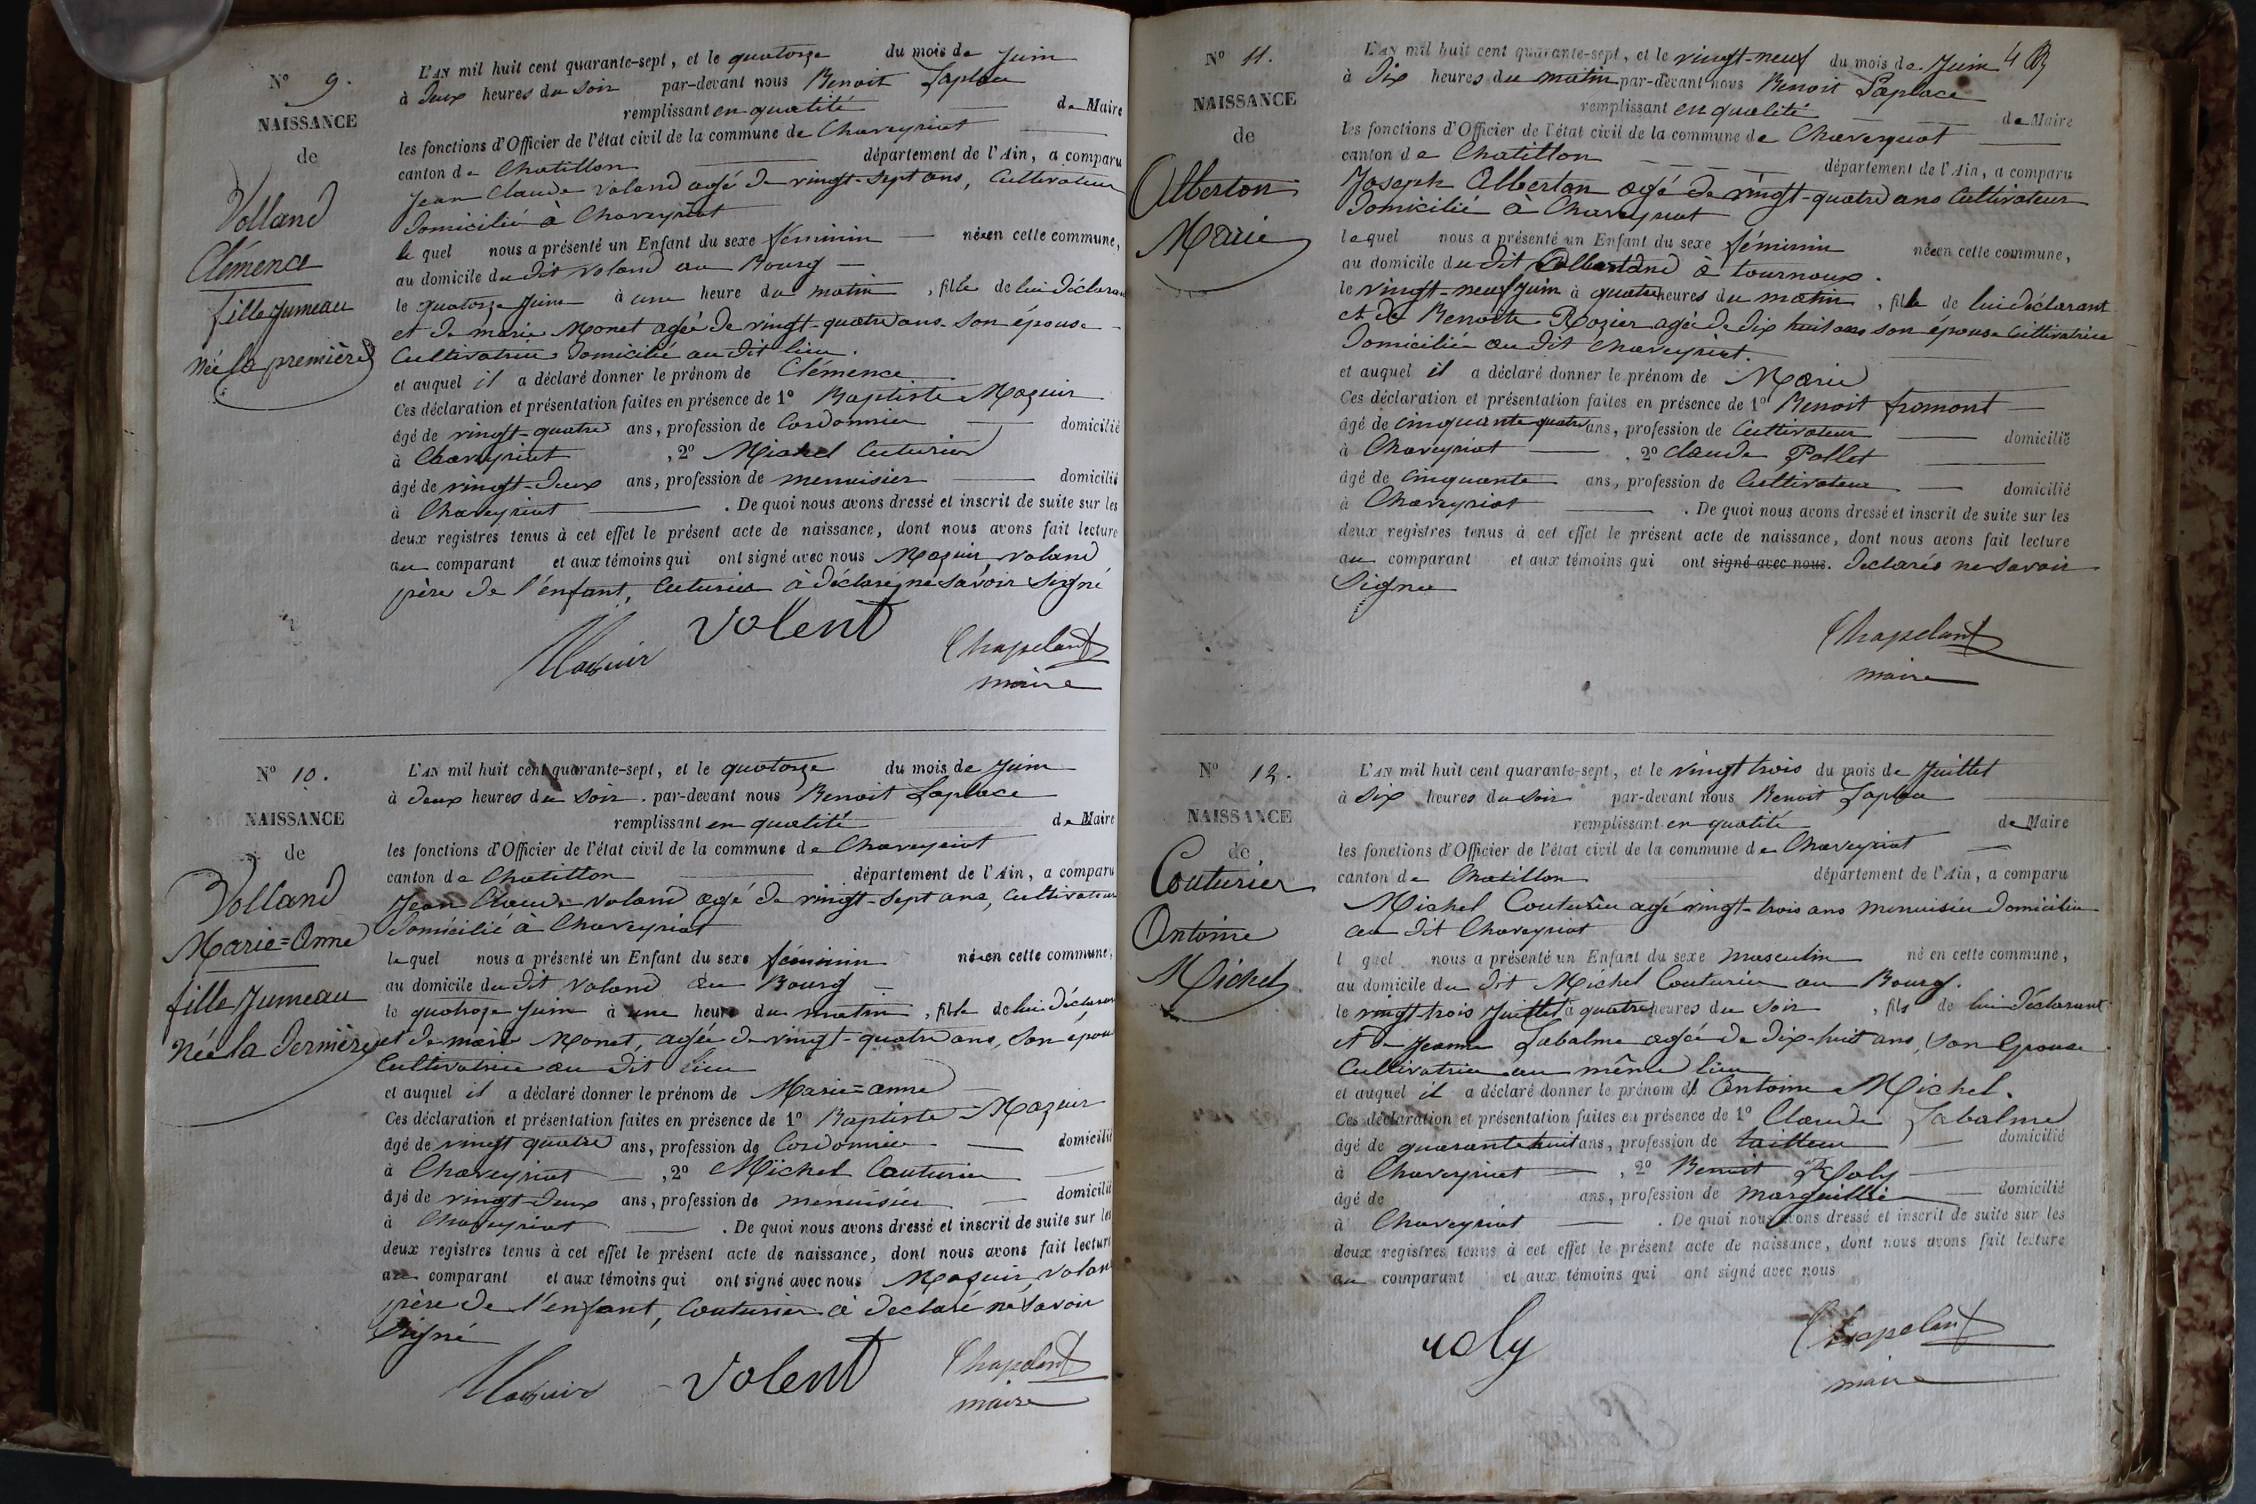 N° 9.
NAISSANCE
de
Volland
Clémence
fille jumeau
née la première
L'AN mil huit cent quarante-sept, et le quatorze du mois de Juin
à deux heures du soir par-devant nous Benoit Laplace
remplissant en qualité de Maire
les fonctions d'Officier de l'état civil de la commune de Chaveyriat
canton de Chatillon département de l'Ain, a comparu
Jean Claude Voland agé de vingt-sept ans, Cultivateur
domicilié à Chaveyriat
le quel nous a présenté un Enfant du sexe féminin née en cette commune,
au domicile du dit Voland au Bourg
le quatorze Juin à une heure du matin, fille de lui déclarant
et de marie Monet agée de vingt-quatre ans son épouse
Cultivatrice domicilié au dit lieu.
et auquel il a déclaré donner le prénom de Clémence
Ces déclaration et présentation faites en présence de 1° Baptiste Mazuir
âgé de vingt-quatre ans, profession de Cordonnier domicilié
à Chaveyriat, 2° Michel Cuturier
âgé de vingt-deux ans, profession de menuisier domicilié
à Chaveyriat. De quoi nous avons dressé et inscrit de suite sur les
deux registres tenus à cet effet le présent acte de naissance, dont nous avons fait lecture
au comparant et aux témoins qui ont signé avec nous Mazuir, Voland
père de l'enfant, Cuturier à déclaré ne savoir signé
Mazuir Volent Chapelant
maire
N° 10.
NAISSANCE
de
Volland
Marie=Anne
fille jumeau
Née la dernière
L'AN mil huit cent quarante-sept, et le quatorze du mois de Juin
à deux heures du soir. par-devant nous Benoit Laplace
remplissant en qualité de Maire
les fonctions d'Officier de l'état civil de la commune de Chaveyriat
canton de Chatillon département de l'Ain, a comparu
Jean Claude Voland agé de vingt-sept ans, Cultivateur
domicilié à Chaveyriat
le quel nous a présenté un Enfant du sexe féminin née en cette commune,
au domicile du dit Voland au Bourg
le quatroze Juin à une heure du matin, fille de lui déclarant
et de marie Monet, agée de vingt-quatre ans, son épouse
Cultivatrice au dit lieu
et auquel il a déclaré donner le prénom de Marie=anne
Ces déclaration et présentation faites en présence de 1° Baptiste Mazuir
âgé de vingt quatre ans, profession de Cordonnier domicilié
à Chaveyriat, 2° Michel Couturier
âgé de vingt-deux ans, profession de menuisier domicilié
à Chaveyriat. De quoi nous avons dressé et inscrit de suite sur les
deux registres tenus à cet effet le présent acte de naissance, dont nous avons fait lecture
au comparant et aux témoins qui ont signé avec nous Mazuir, Volan
père de l'enfant, Couturier à declaré ne savoir
signé
Mazuir Volent Chapelant
maire
N° 11.
NAISSANCE
de
Alberton
Marie
L'AN mil huit cent quarante-sept, et le vingt-neuf du mois de Juin 4
à dix heures du matin par-devant nous Benoit Laplace
remplissant en qualité de Maire
les fonctions d'Officier de l'état civil de la commune de Chaveyriat
canton de Chatillon département de l'Ain, a comparu
Joseph Alberton agé de vingt-quatre ans Cultivateur
domicilié à Chaveyriat
le quel nous a présenté un Enfant du sexe féminin née en cette commune,
au domicile du dit à tournoux.
le vingt-neuf Juin à quatre heures du matin, fille de lui déclarant
et de Benoite Rozier agé de dix huit ans son épouse Cultivatrice
domicilié au dit Chaveyriat.
et auquel il a déclaré donner le prénom de Marie
Ces déclaration et présentation faites en présence de 1° Benoit fromont
âgé de cinquante quatre ans, profession de Cultivateur domicilié
à Chaveyriat, 2° Claude Pollet
âgé de cinquante ans, profession de Cultivateur domicilié
à Chaveyriat. De quoi nous avons dressé et inscrit de suite sur les
deux registres tenus à cet effet le présent acte de naissance, dont nous avons fait lecture
au comparant et aux témoins qui ont signé avec nous. declarés ne savoir
Signer
Chapelant
maire
N° 12.
NAISSANCE
de
Couturier
Antoine
Michel
L'AN mil huit cent quarante-sept, et le vingt trois du mois de Juillet
à six heures du soir par-devant nous Benoit Laplace
remplissant en qualité de Maire
les fonctions d'Officier de l'état civil de la commune de Chaveyriat
canton de Chatillon département de l'Ain, a comparu
Michel Couturier agé vingt-trois ans menuisier domicilié
au dit Chaveyriat
l quel nous a présenté un Enfant du sexe masculin né en cette commune,
au domicile du dit Michel Couturier au Bourg.
le vingt trois Juillet à quatre heures du soir, fils de lui déclarant
et de Jeanne Labalme agée de dix-huit ans, son Epouse
Cultivatrice au même lieu
et auquel il a déclaré donner le prénom d' Antoine Michel.
Ces déclaration et présentation faites en présence de 1° Claude Labalme
âgé de quarante huit ans, profession de tailleur domicilié
à Chaveyriat, 2° Benoit Joly
âgé de ans, profession de marguillié domicilié
à Chaveyriat. De quoi nous avons dressé et inscrit de suite sur les
deux registres tenus à cet effet le présent acte de naissance, dont nous avons fait lecture
au comparant et aux témoins qui ont signé avec nous
Joly Chapelant
maire